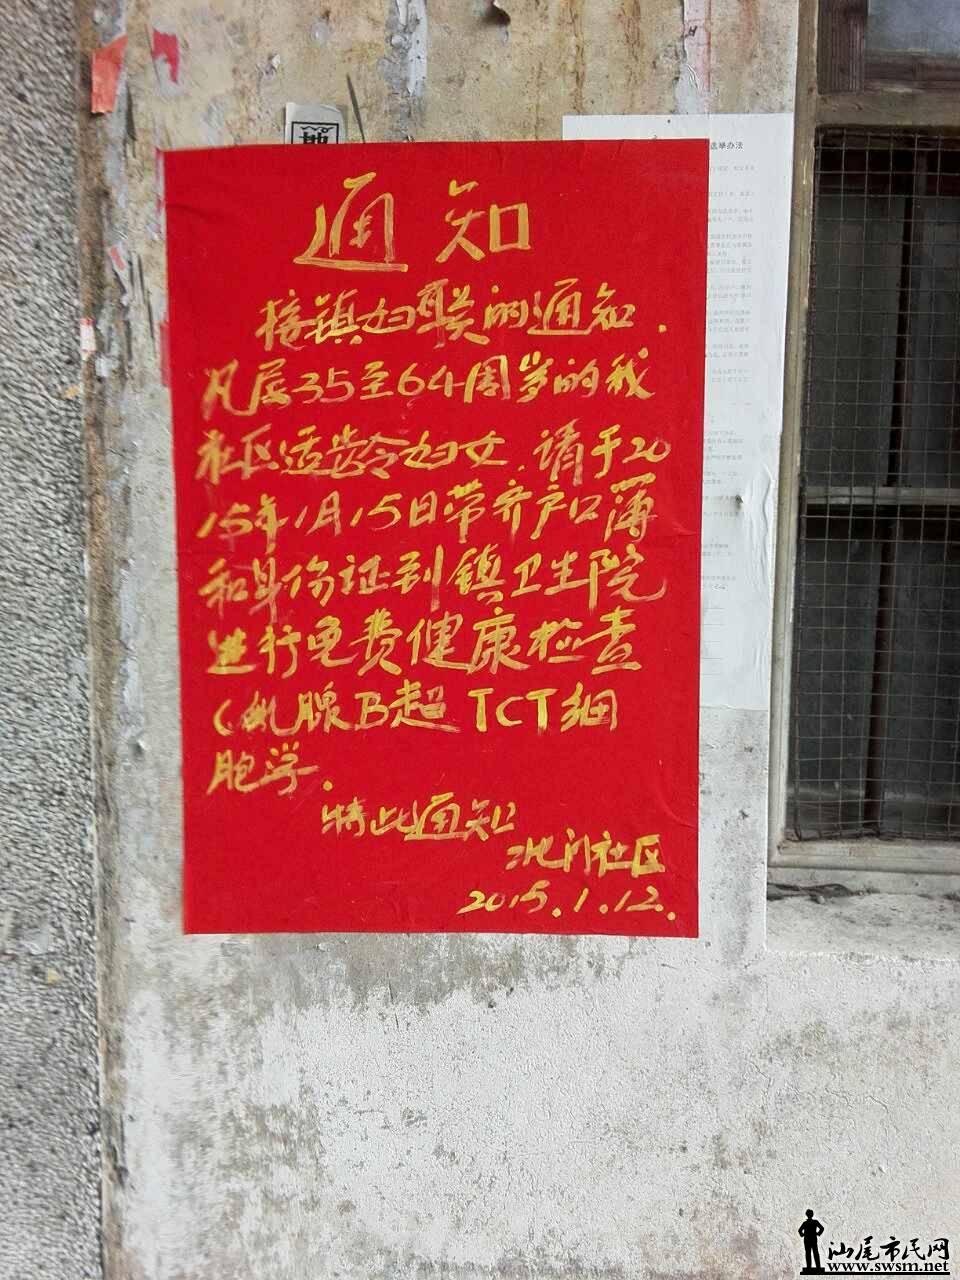 通知
接镇妇联的通知.
凡居35至64周岁的我
社区适龄妇女.请于20
15年1月15日带齐户口簿
和身份证到镇卫生院
进行免费健康检查
(乳腺B超 TCT细
胞学.
特此通知
北门社区
2015.1.12.
选举办法
汕尾市民网
www.swsm.net